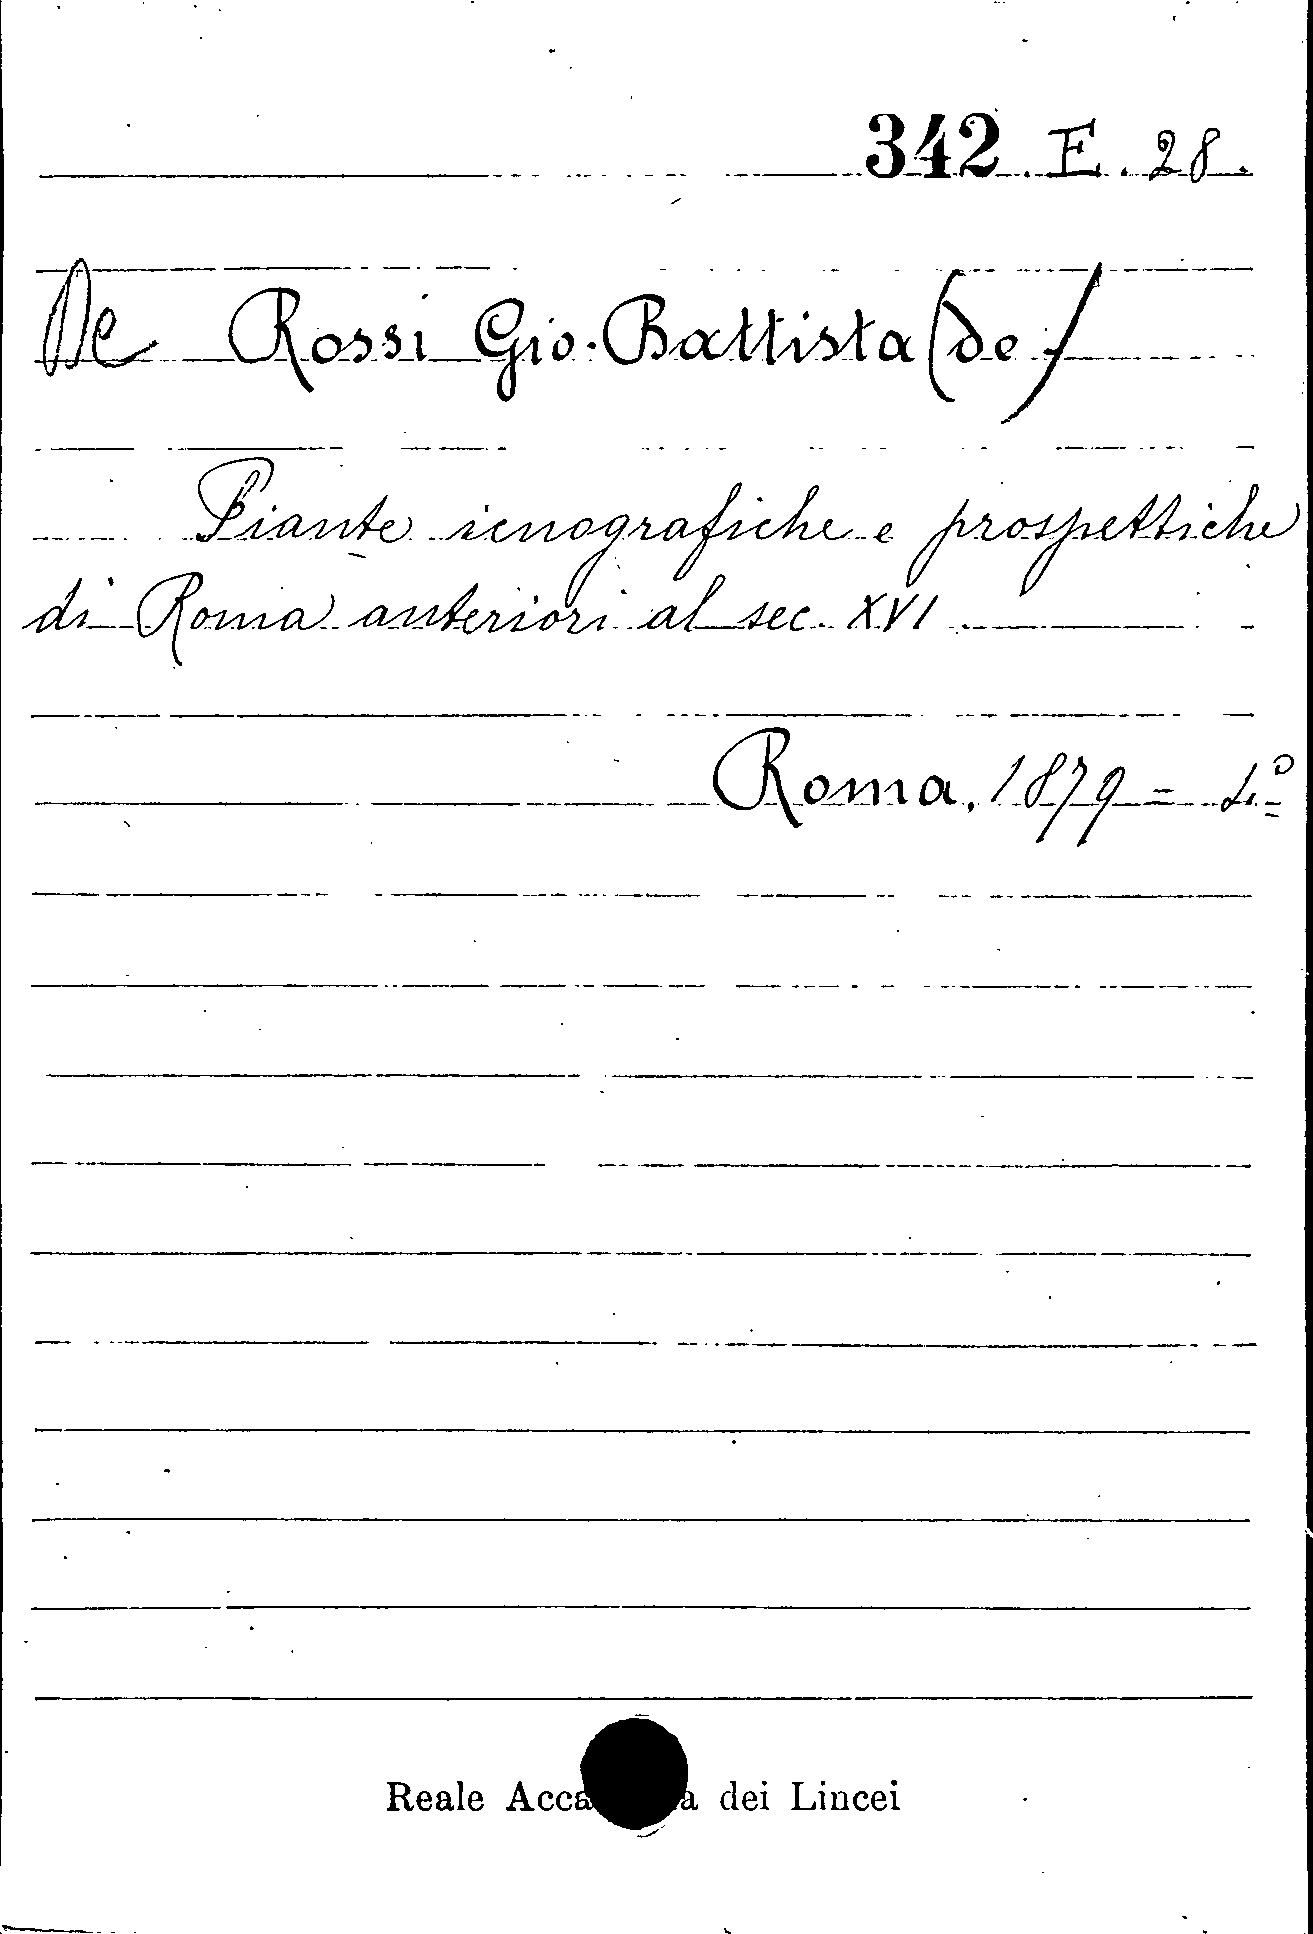 342. E. 28.
De Rossi Gio. Battista (de)
Piante icnografiche e prospettiche
di Roma anteriori al sec. XVI
Roma, 1879 = 4.º
Reale Acca a dei Lincei